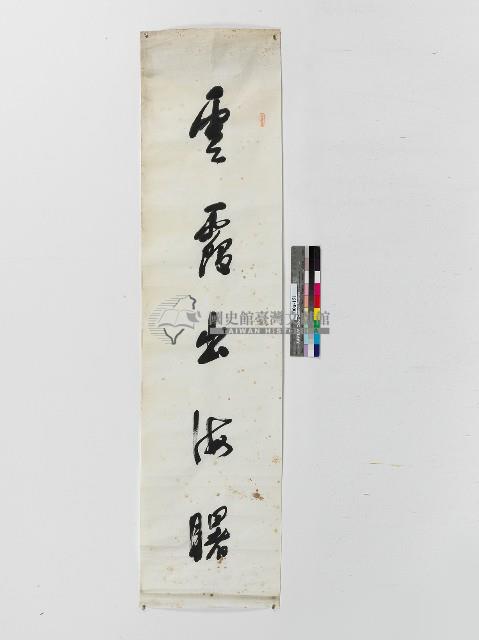 雲霞出海曙
國史館臺灣文獻館
TAIWAN HISTORICA